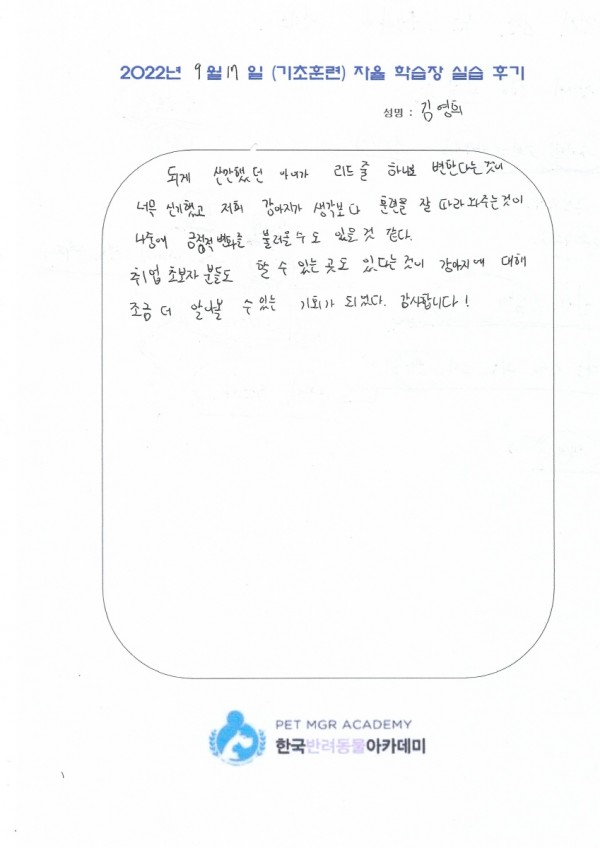 2022년 9월 17일 (기초훈련) 자율 학습장 실습 후기
성명 : 김영희
되게 산만했던 아이가 리드줄 하나로 변한다는것이
너무 신기했고 저희 강아지가 생각보다 훈련을 잘 따라와주는것이
나중에 긍정적 변화를 불러올수도 있을것 같다.
취업 초보자 분들도 할 수 있는 곳도 있다는것이 강아지에 대해
조금 더 알아볼 수 있는 기회가 되었다. 감사합니다!
PET MGR ACADEMY
한국반려동물아카데미